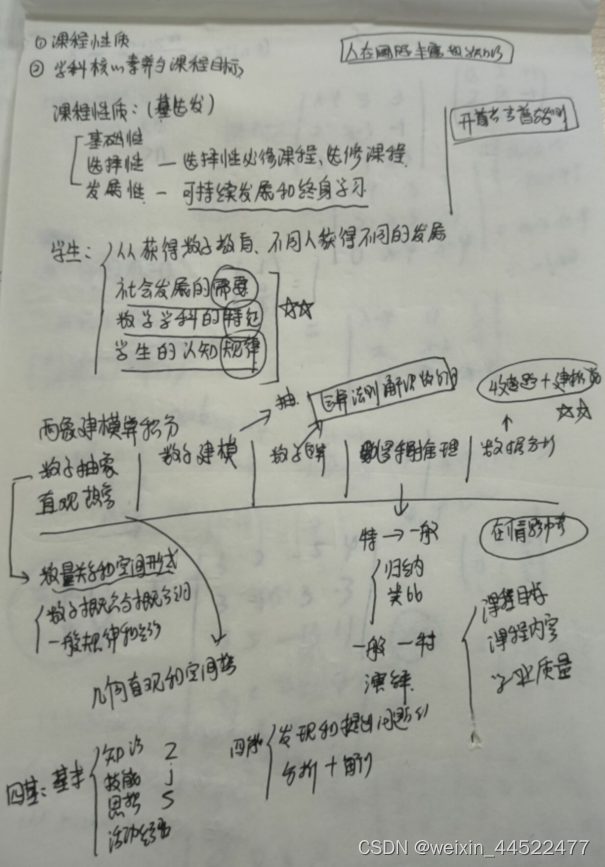 ① 课程性质
② 学科核心素养与课程目标
课程性质：(基选发)
基础性
选择性 — 选择性必修课程、选修课程
发展性 — 可持续发展和终身学习
学生：人人获得数学教育、不同人获得不同的发展
社会发展的需要
数学学科的特征
学生的认知规律
☆☆
两象建模算析分
数学抽象
数学建模
数学运算
推理
数据分析
直观想象
抽
运算法则
☆☆
数量关系和空间形式
数学概念与概念之间
一般规律和结构
几何直观和空间
特 → 一般
归纳
类比
一般 — 特
演绎
在情景中
课程目标
课程内容
学业质量
四基：基本
知识 Z
技能 j
思想 S
活动经验
四能
发现和提出问题
分析 + 解
CSDN @weixin_44522477